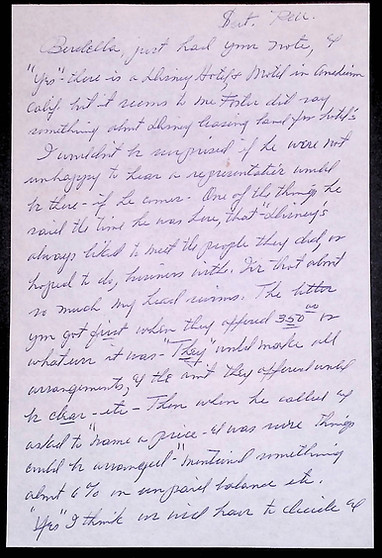 Sat. P.M.
Berdella, just had your note, &
"Yes" - there is a Disney Hotel & Motel in Anaheim
Calif. but it seems to me Foster did say
something about Disney leasing land for hotels
I wouldn't be surprised if he were not
unhappy to hear a representative would
be there - if he comes - One of the things he
said the time he was here, that "Disney's
always liked to meet the people they did, or
hoped to do, business with. For that about
so much my head swims. The letter
you got first when they offered 350.00 or
whatever it was - "They" would make all
arrangements, & the am't they offered would
be clear - etc - Then when he called &
asked to "name a price - & was sure things
could be arranged" - mentioned something
about 6% on unpaid balance etc.
"Yes" I think we will have to decide &